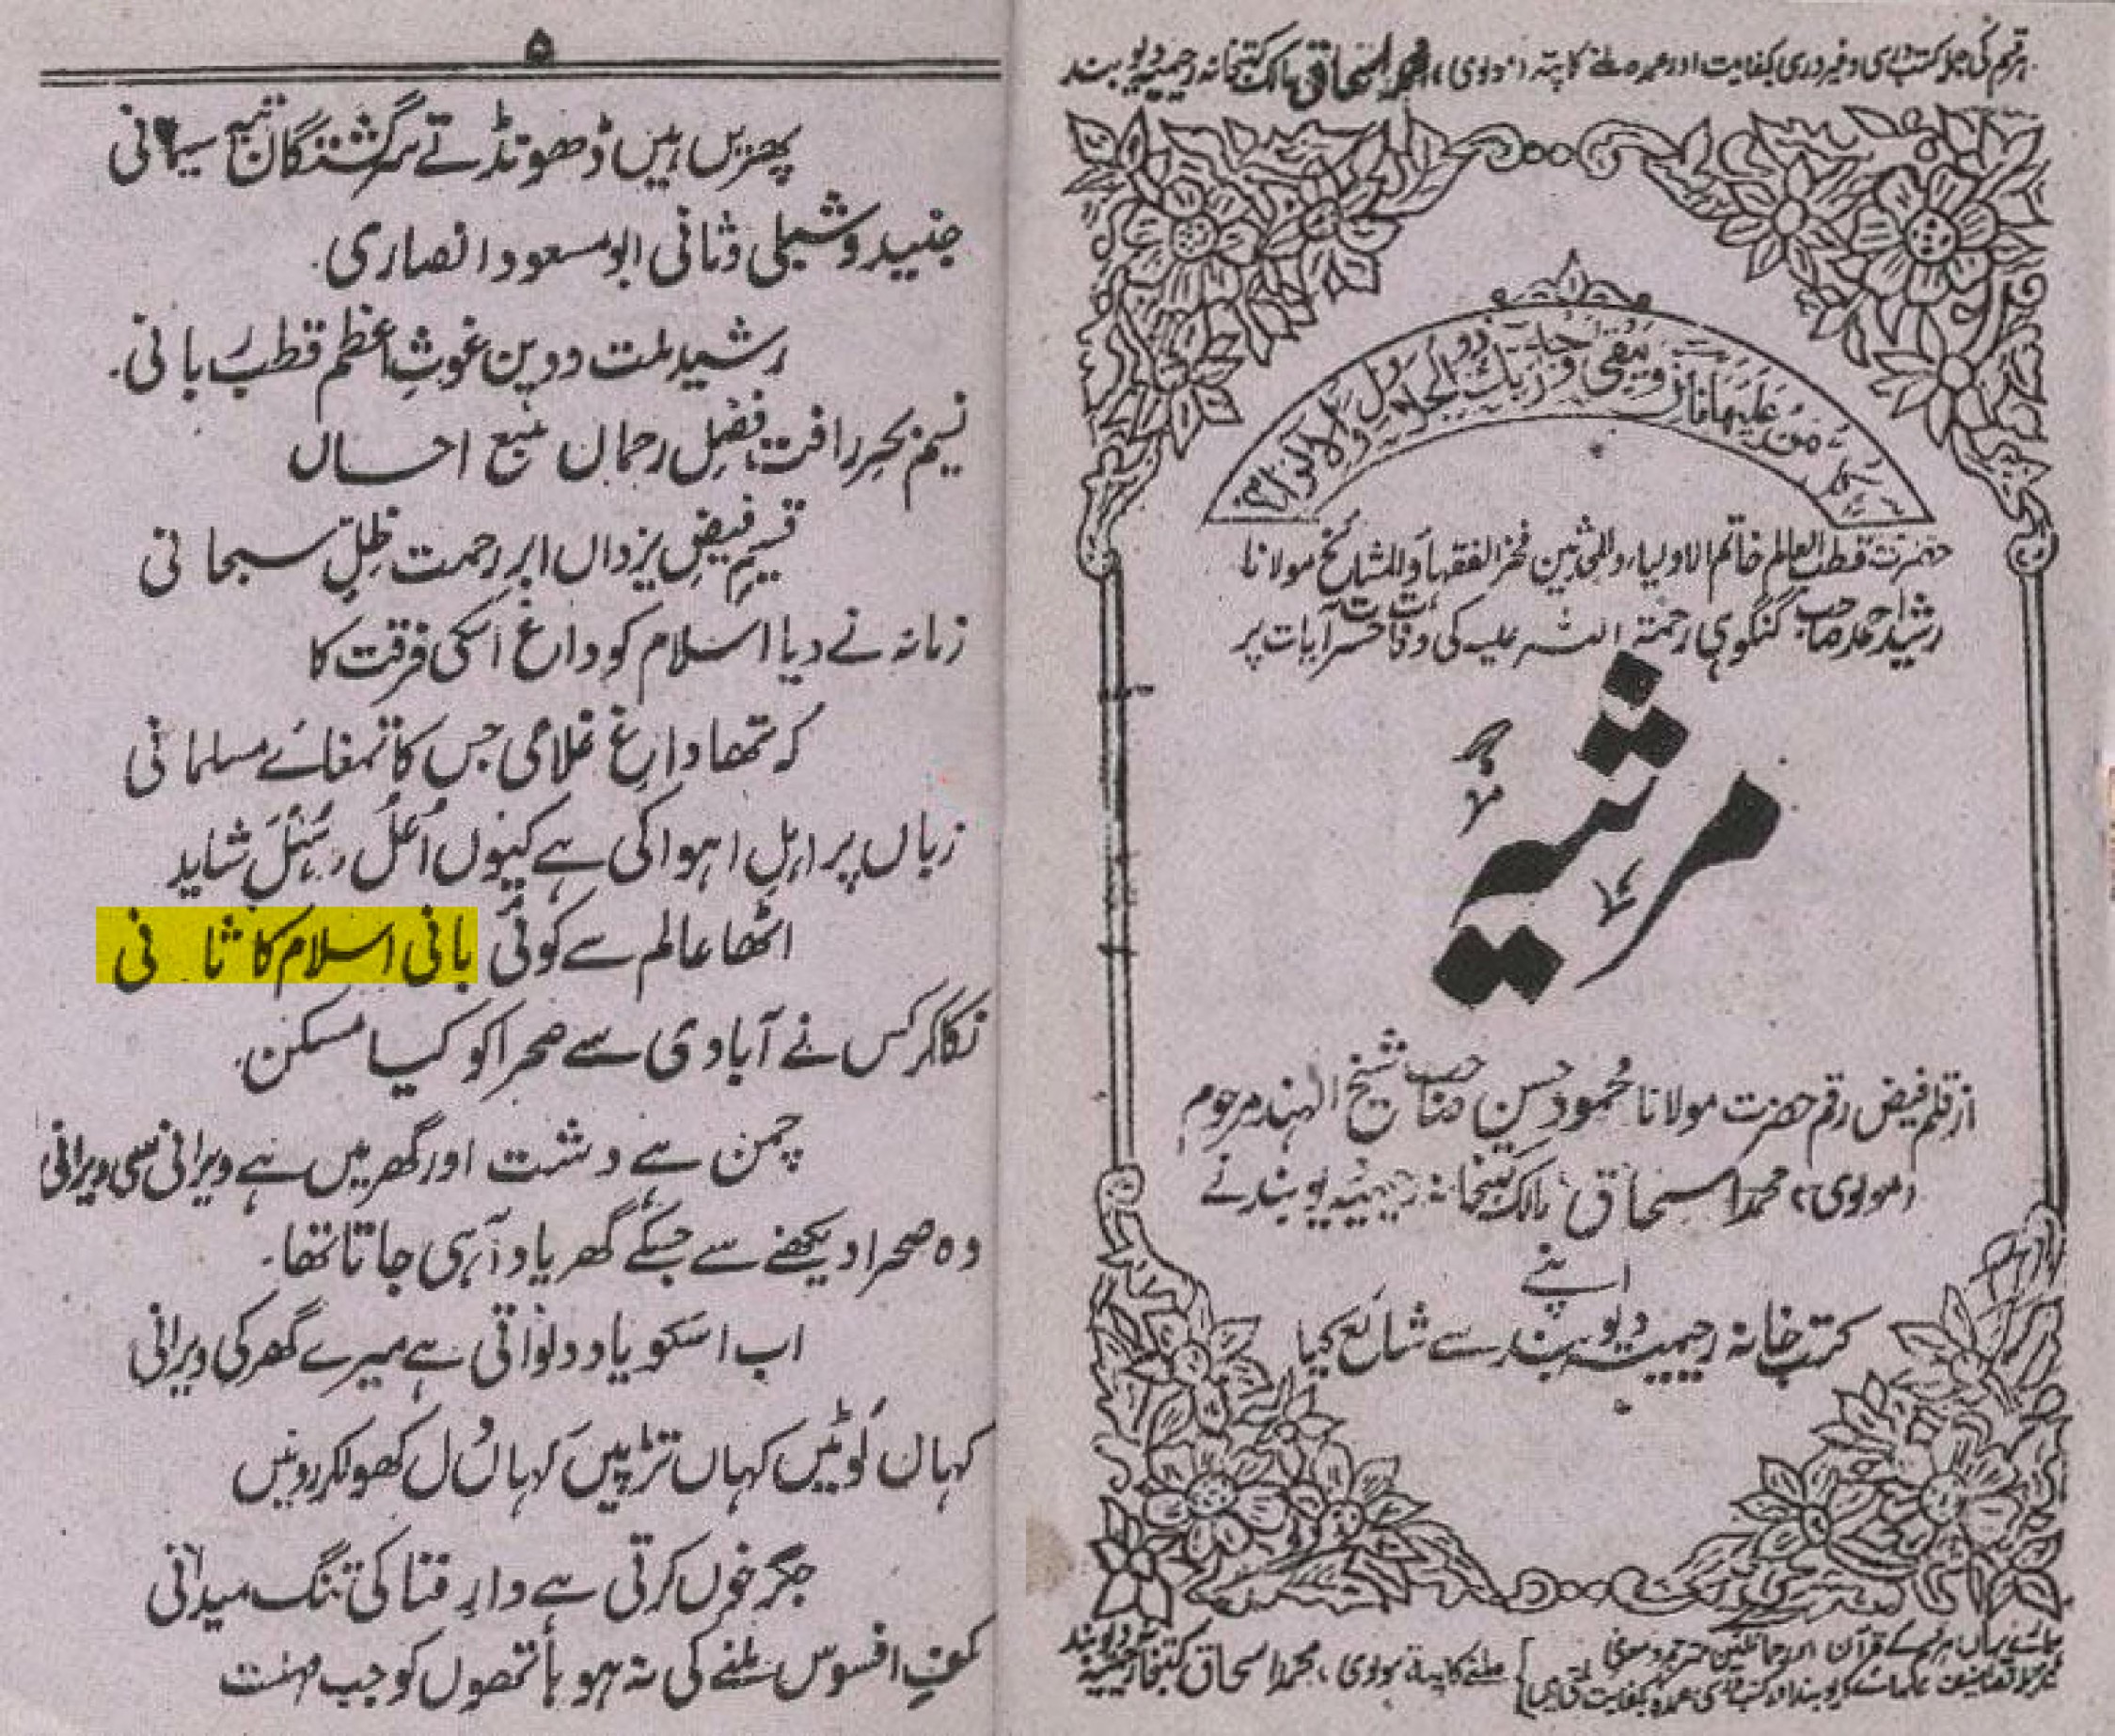 ہر قسم کی جملہ کتب درسی و غیر درسی بکفایت اور عمدہ ملنے کا پتہ (مولوی) محمد اسحاق مالک کتبخانہ رحیمیہ دیوبند
كل من عليها فان ويبقى وجه ربك ذو الجلال والاكرام
حضرت قطب العالم خاتم الاولیاء والمحدثین فخر الفقہاء والمشائخ مولانا
رشید احمد صاحب گنگوہی رحمۃ اللہ علیہ کی وفات حسرت آیات پر
مرثیہ
از قلم فیض رقم حضرت مولانا محمود حسن صاحب شیخ الہند مرحوم
(مولوی) محمد اسحاق مالک کتبخانہ رحیمیہ دیوبند نے
اپنے
کتب خانہ رحیمیہ دیوبند سے شائع کیا
ملنے کا پتہ مولوی محمد اسحاق کتبخانہ رحیمیہ دیوبند
۵
پھریں ہیں ڈھونڈتے سرگشتگان تیہ
جنید و شبلی و ثانی ابو مسعود انصاری
رشید ملت و دین غوث اعظم قطب ربانی
نسیم بحر رافت، فضل رحماں منبع احساں
قسیم فیض یزداں ابر رحمت ظل سبحانی
زمانہ نے دیا اسلام کو داغ اسکی فرقت کا
کہ تھا داغ غلامی جس کا تمغائے مسلمانی
زباں پر اہل اہوا کی ہے کیوں اُعلُ ہُبُل شاید
اٹھا عالم سے کوئی بانی اسلام کا ثانی
نکالکر کس نے آبادی سے صحرا کو کیا مسکن
چمن ہے دشت اور گھر میں ہے ویرانی سی ویرانی
وہ صحرا دیکھنے سے جسکے گھر یاد آہی جاتا تھا
اب اسکو یاد دلواتی ہے میرے گھر کی ویرانی
کہاں لوٹیں کہاں تڑپیں کہاں دل کھولکر روئیں
جگر خوں کرتی ہے دار فنا کی تنگ میدانی
کف افسوس ملنے کی نہ ہو ہاتھوں کو جب مہلت